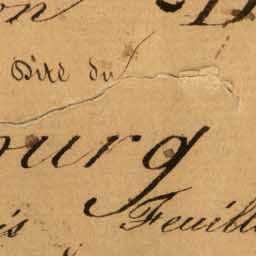 on
Dite du
ourg
is Feuill